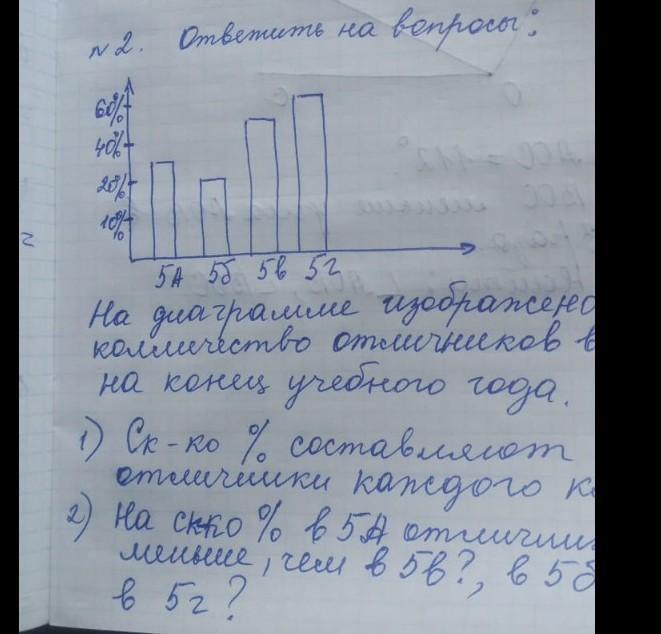 №2. Ответить на вопросы:
60%
40%
20%
10%
5А 5б 5в 5г
На диаграмме изображено
колличество отличников в
на конец учебного года.
1) Ск-ко % составляют
отличники каждого к
2) На скко % в 5А отличник
меньше, чем в 5в?, в 5б
в 5г?